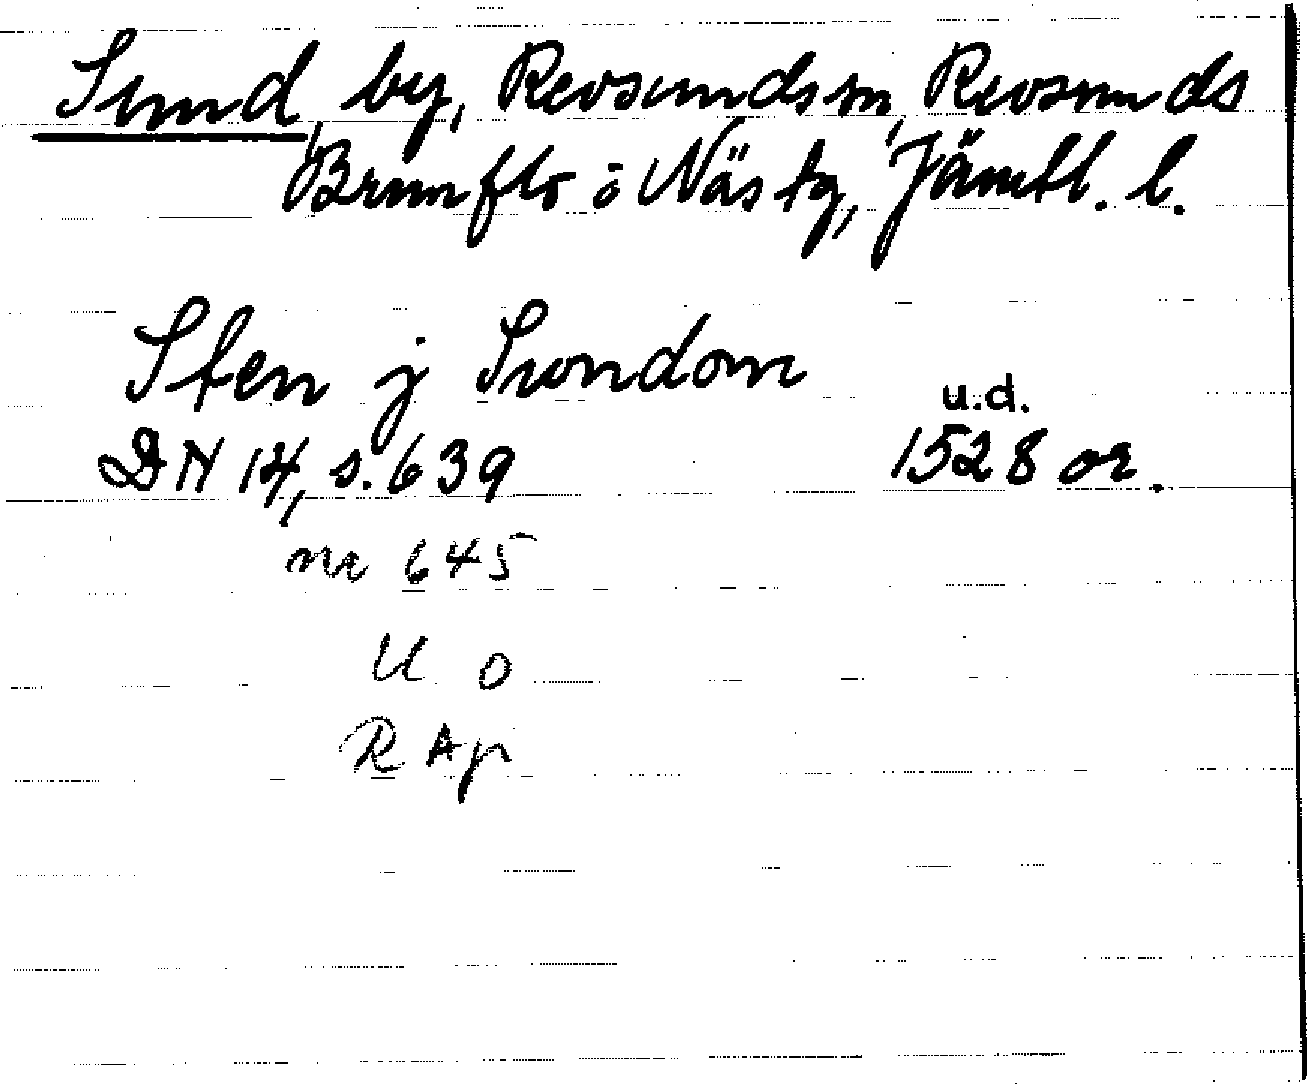 Sund, by, Revsunds sn, Revsunds
Brunflo o Näs tg, Jämtl. l.
Sten j Swndom
u.d.
DN 14, s. 639 1528 or.
nr 645
U O
R Ap